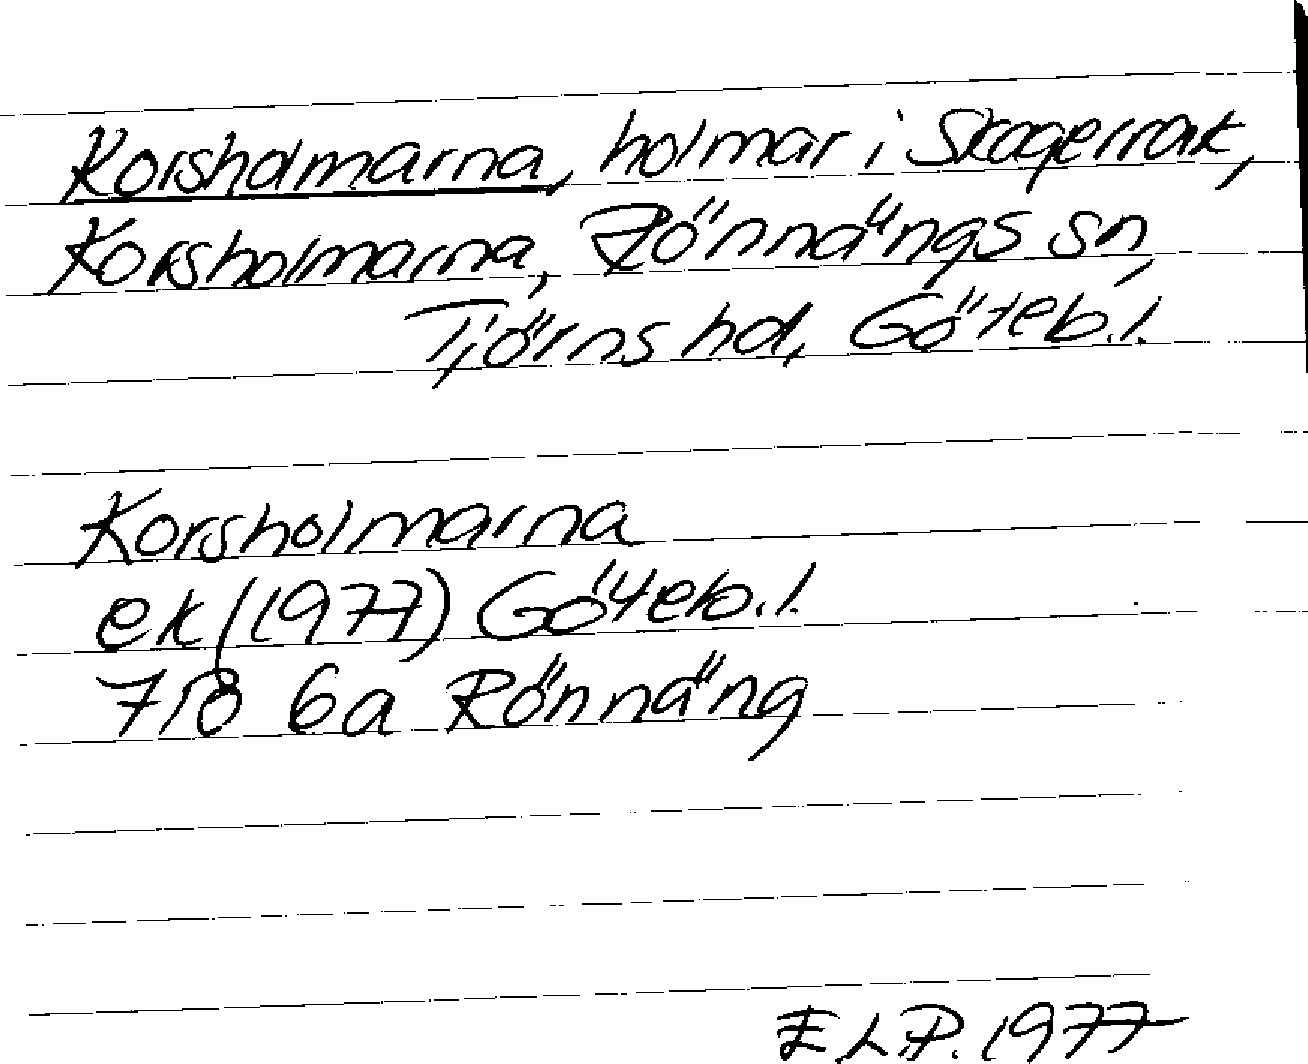 Korsholmarna, holmar i Skagerrak,
Korsholmarna, Rönnängs sn,
Tjörns hd, Göteb. l.
Korsholmarna
ek (1977) Göteb. l.
7/8 6a Rönnäng
E L P. 1977